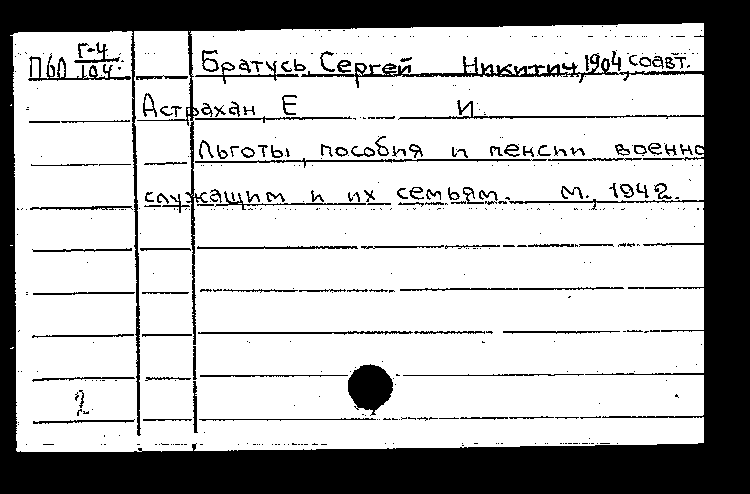 ПбЛ Г-4/104. Братусь, Сергей Никитич, 1904, соавт.
Астрахан, Е И.
Льготы, пособия и пенсии военно
служащим и их семьям. М., 1942.
2